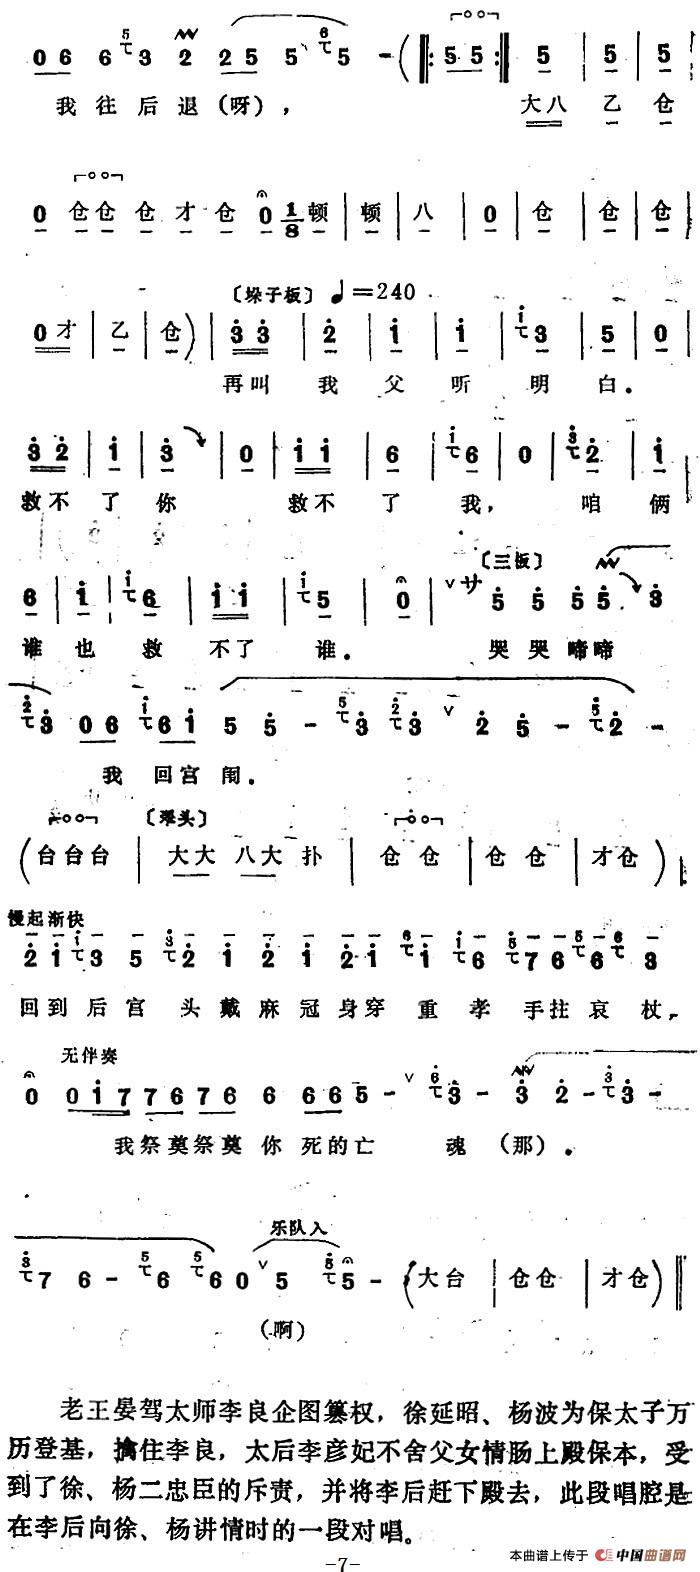 0 6 6 3 2 2 5 5 5 - ( 5 5 5 5 5
我 往 后 退 (呀)， 大八 乙 仓
0 仓仓 仓 才 仓 0 1/8 顿 顿 八 0 仓 仓 仓
〔垛子板〕 ♩=240
0才 乙 仓 ) 3 3 2 1 1 3 5 0
再叫 我 父 听 明 白.
3 2 1 3 0 1 1 6 6 0 2 1
救不 了 你 救不 了 我， 咱 俩
〔三板〕
6 1 6 1 1 5 0 サ 5 5 5 5 3
谁 也 救 不了 谁. 哭 哭 啼啼
3 0 6 6 1 5 5 - 3 3 2 5 - 2 -
我 回宫 闱.
〔凙头〕
( 台台台 大大 八大 扑 仓 仓 仓 仓 才仓 ).
慢起渐快
2 1 3 5 2 1 2 1 2 1 1 6 7 6 6 3
回到 后 宫 头 戴 麻 冠 身穿 重 孝 手拄 哀 杖，
无伴奏
0 0 1 7 7 6 7 6 6 6 6 5 - 3 - 3 2 - 3 -
我祭 奠祭 奠 你 死的亡 魂 (那).
乐队入
7 6 - 6 6 0 5 5 - ( 大台 仓仓 才仓 )
(啊)
老王晏驾太师李良企图篡权，徐延昭、杨波为保太子万
历登基，擒住李良，太后李彦妃不舍父女情肠上殿保本，受
到了徐、杨二忠臣的斥责，并将李后赶下殿去，此段唱腔是
在李后向徐、杨讲情时的一段对唱。
-7-
本曲谱上传于 中国曲谱网